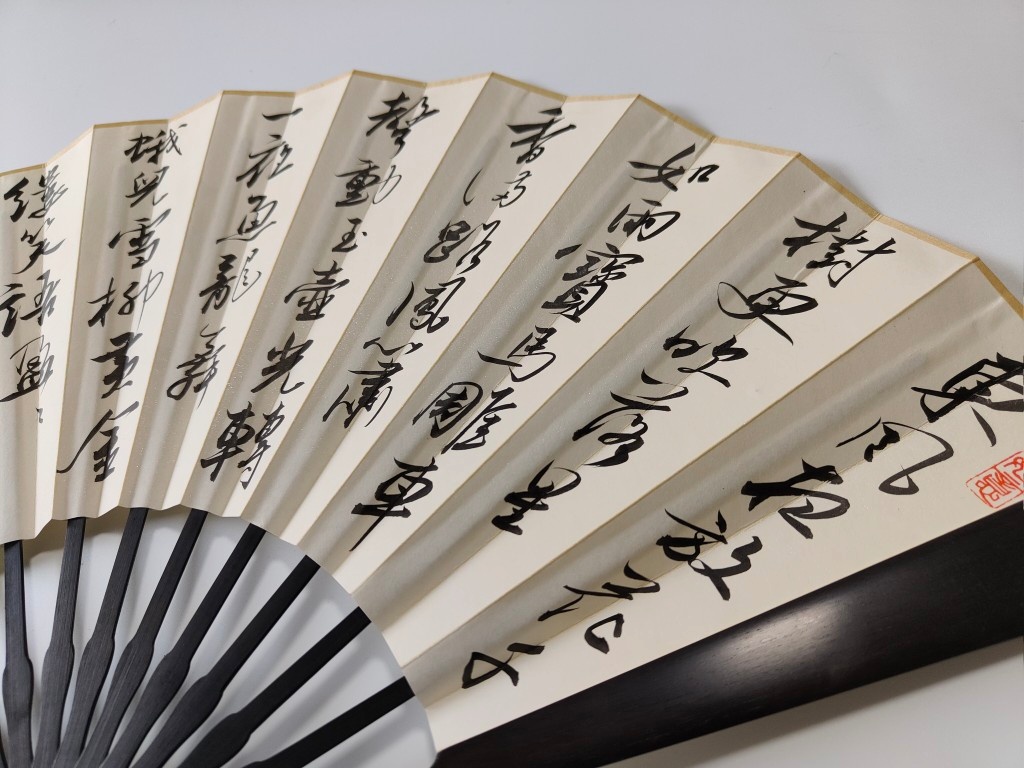 東風夜放花千
樹更吹落星
如雨寶馬雕車
香滿路鳳簫
聲動玉壺光轉
一夜魚龍舞
蛾兒雪柳黃金
縷笑語盈〻